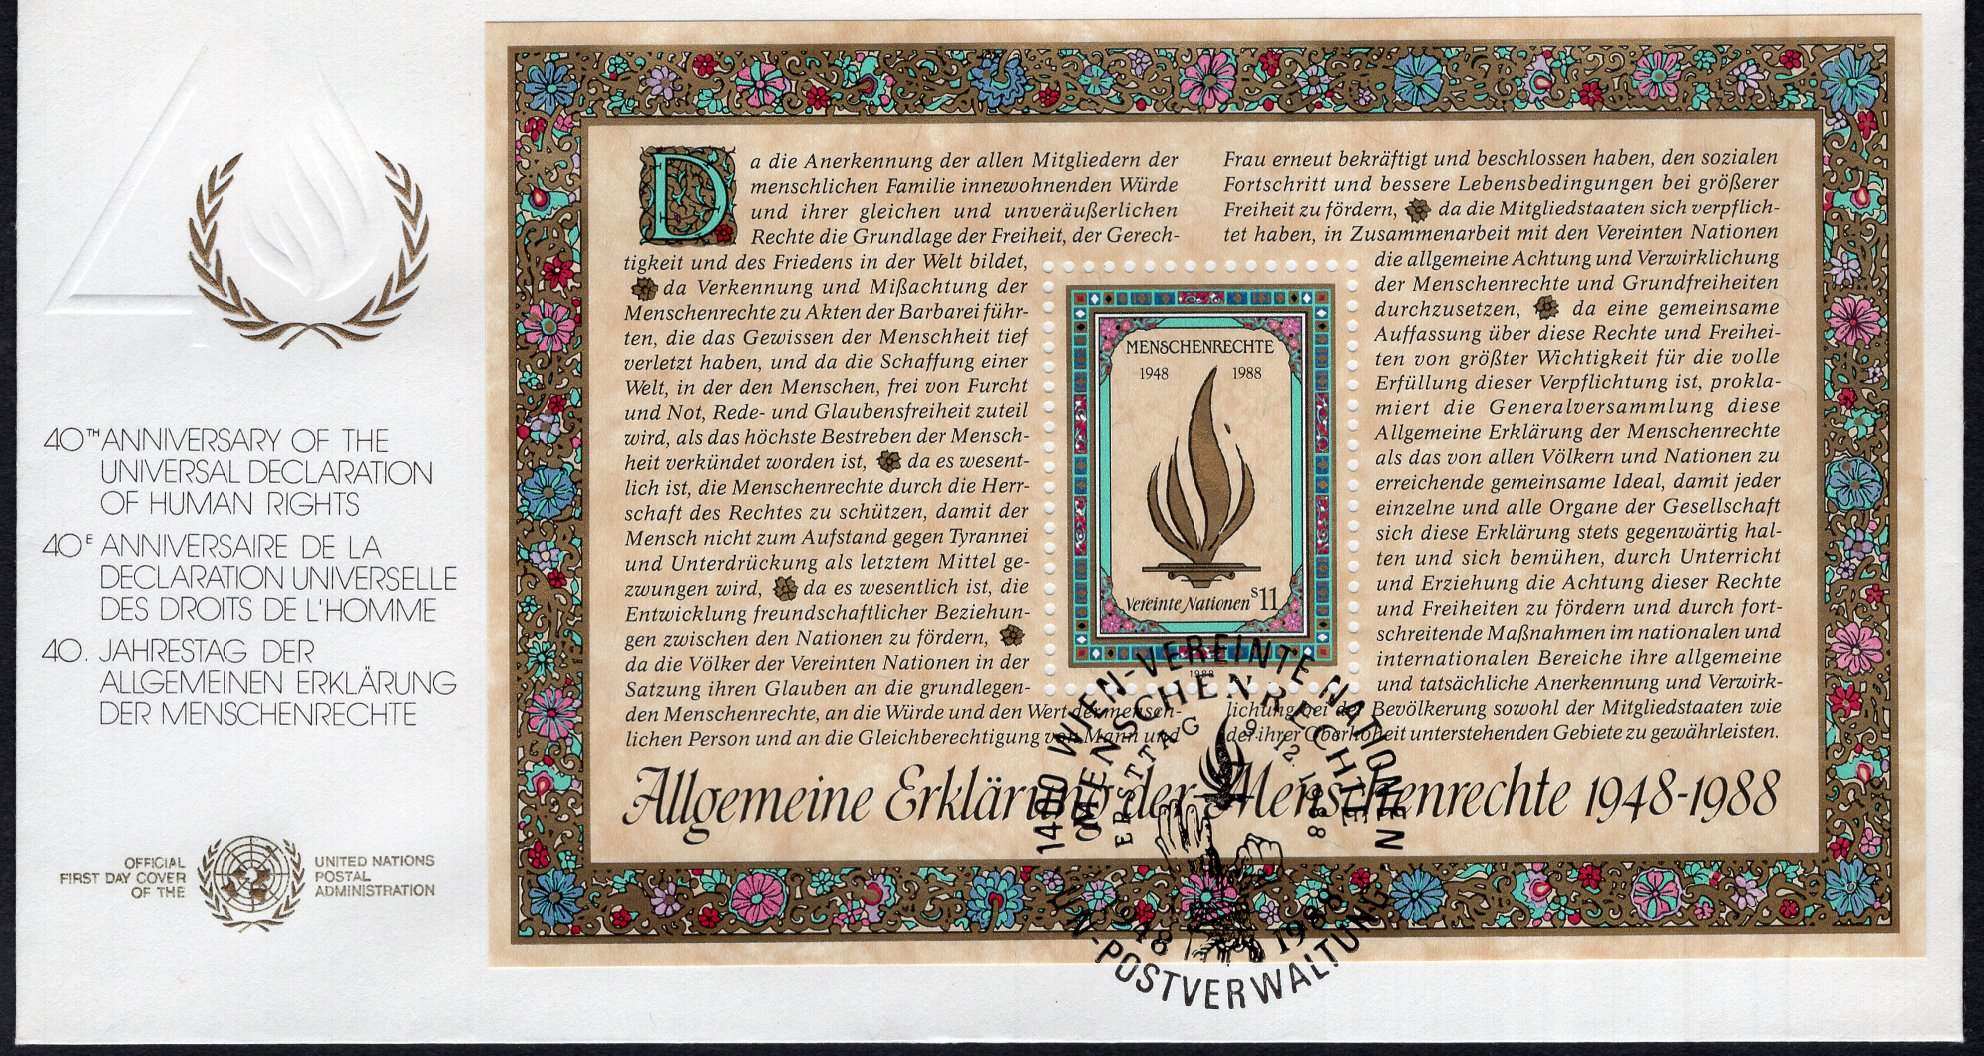 40TH ANNIVERSARY OF THE
UNIVERSAL DECLARATION
OF HUMAN RIGHTS
40E ANNIVERSAIRE DE LA
DECLARATION UNIVERSELLE
DES DROITS DE L'HOMME
40. JAHRESTAG DER
ALLGEMEINEN ERKLÄRUNG
DER MENSCHENRECHTE
OFFICIAL
FIRST DAY COVER
OF THE
UNITED NATIONS
POSTAL
ADMINISTRATION
Da die Anerkennung der allen Mitgliedern der
menschlichen Familie innewohnenden Würde
und ihrer gleichen und unveräußerlichen
Rechte die Grundlage der Freiheit, der Gerech-
tigkeit und des Friedens in der Welt bildet,
da Verkennung und Mißachtung der
Menschenrechte zu Akten der Barbarei führ-
ten, die das Gewissen der Menschheit tief
verletzt haben, und da die Schaffung einer
Welt, in der den Menschen, frei von Furcht
und Not, Rede- und Glaubensfreiheit zuteil
wird, als das höchste Bestreben der Mensch-
heit verkündet worden ist, da es wesent-
lich ist, die Menschenrechte durch die Herr-
schaft des Rechtes zu schützen, damit der
Mensch nicht zum Aufstand gegen Tyrannei
und Unterdrückung als letztem Mittel ge-
zwungen wird, da es wesentlich ist, die
Entwicklung freundschaftlicher Beziehun-
gen zwischen den Nationen zu fördern,
da die Völker der Vereinten Nationen in der
Satzung ihren Glauben an die grundlegen-
den Menschenrechte, an die Würde und den Wert der mensch-
lichen Person und an die Gleichberechtigung von Mann und
Frau erneut bekräftigt und beschlossen haben, den sozialen
Fortschritt und bessere Lebensbedingungen bei größerer
Freiheit zu fördern, da die Mitgliedstaaten sich verpflich-
tet haben, in Zusammenarbeit mit den Vereinten Nationen
die allgemeine Achtung und Verwirklichung
der Menschenrechte und Grundfreiheiten
durchzusetzen, da eine gemeinsame
Auffassung über diese Rechte und Freihei-
ten von größter Wichtigkeit für die volle
Erfüllung dieser Verpflichtung ist, prokla-
miert die Generalversammlung diese
Allgemeine Erklärung der Menschenrechte
als das von allen Völkern und Nationen zu
erreichende gemeinsame Ideal, damit jeder
einzelne und alle Organe der Gesellschaft
sich diese Erklärung stets gegenwärtig hal-
ten und sich bemühen, durch Unterricht
und Erziehung die Achtung dieser Rechte
und Freiheiten zu fördern und durch fort-
schreitende Maßnahmen im nationalen und
internationalen Bereiche ihre allgemeine
und tatsächliche Anerkennung und Verwirk-
lichung bei der Bevölkerung sowohl der Mitgliedstaaten wie
der ihrer Oberhoheit unterstehenden Gebiete zu gewährleisten.
MENSCHENRECHTE
1948 1988
Vereinte Nationen S11
1988
Allgemeine Erklärung der Menschenrechte 1948-1988
1400 WIEN-VEREINTE NATIONEN
MENSCHENRECHTE
ERSTTAG 9.12.1988
1948 1988
UN-POSTVERWALTUNG